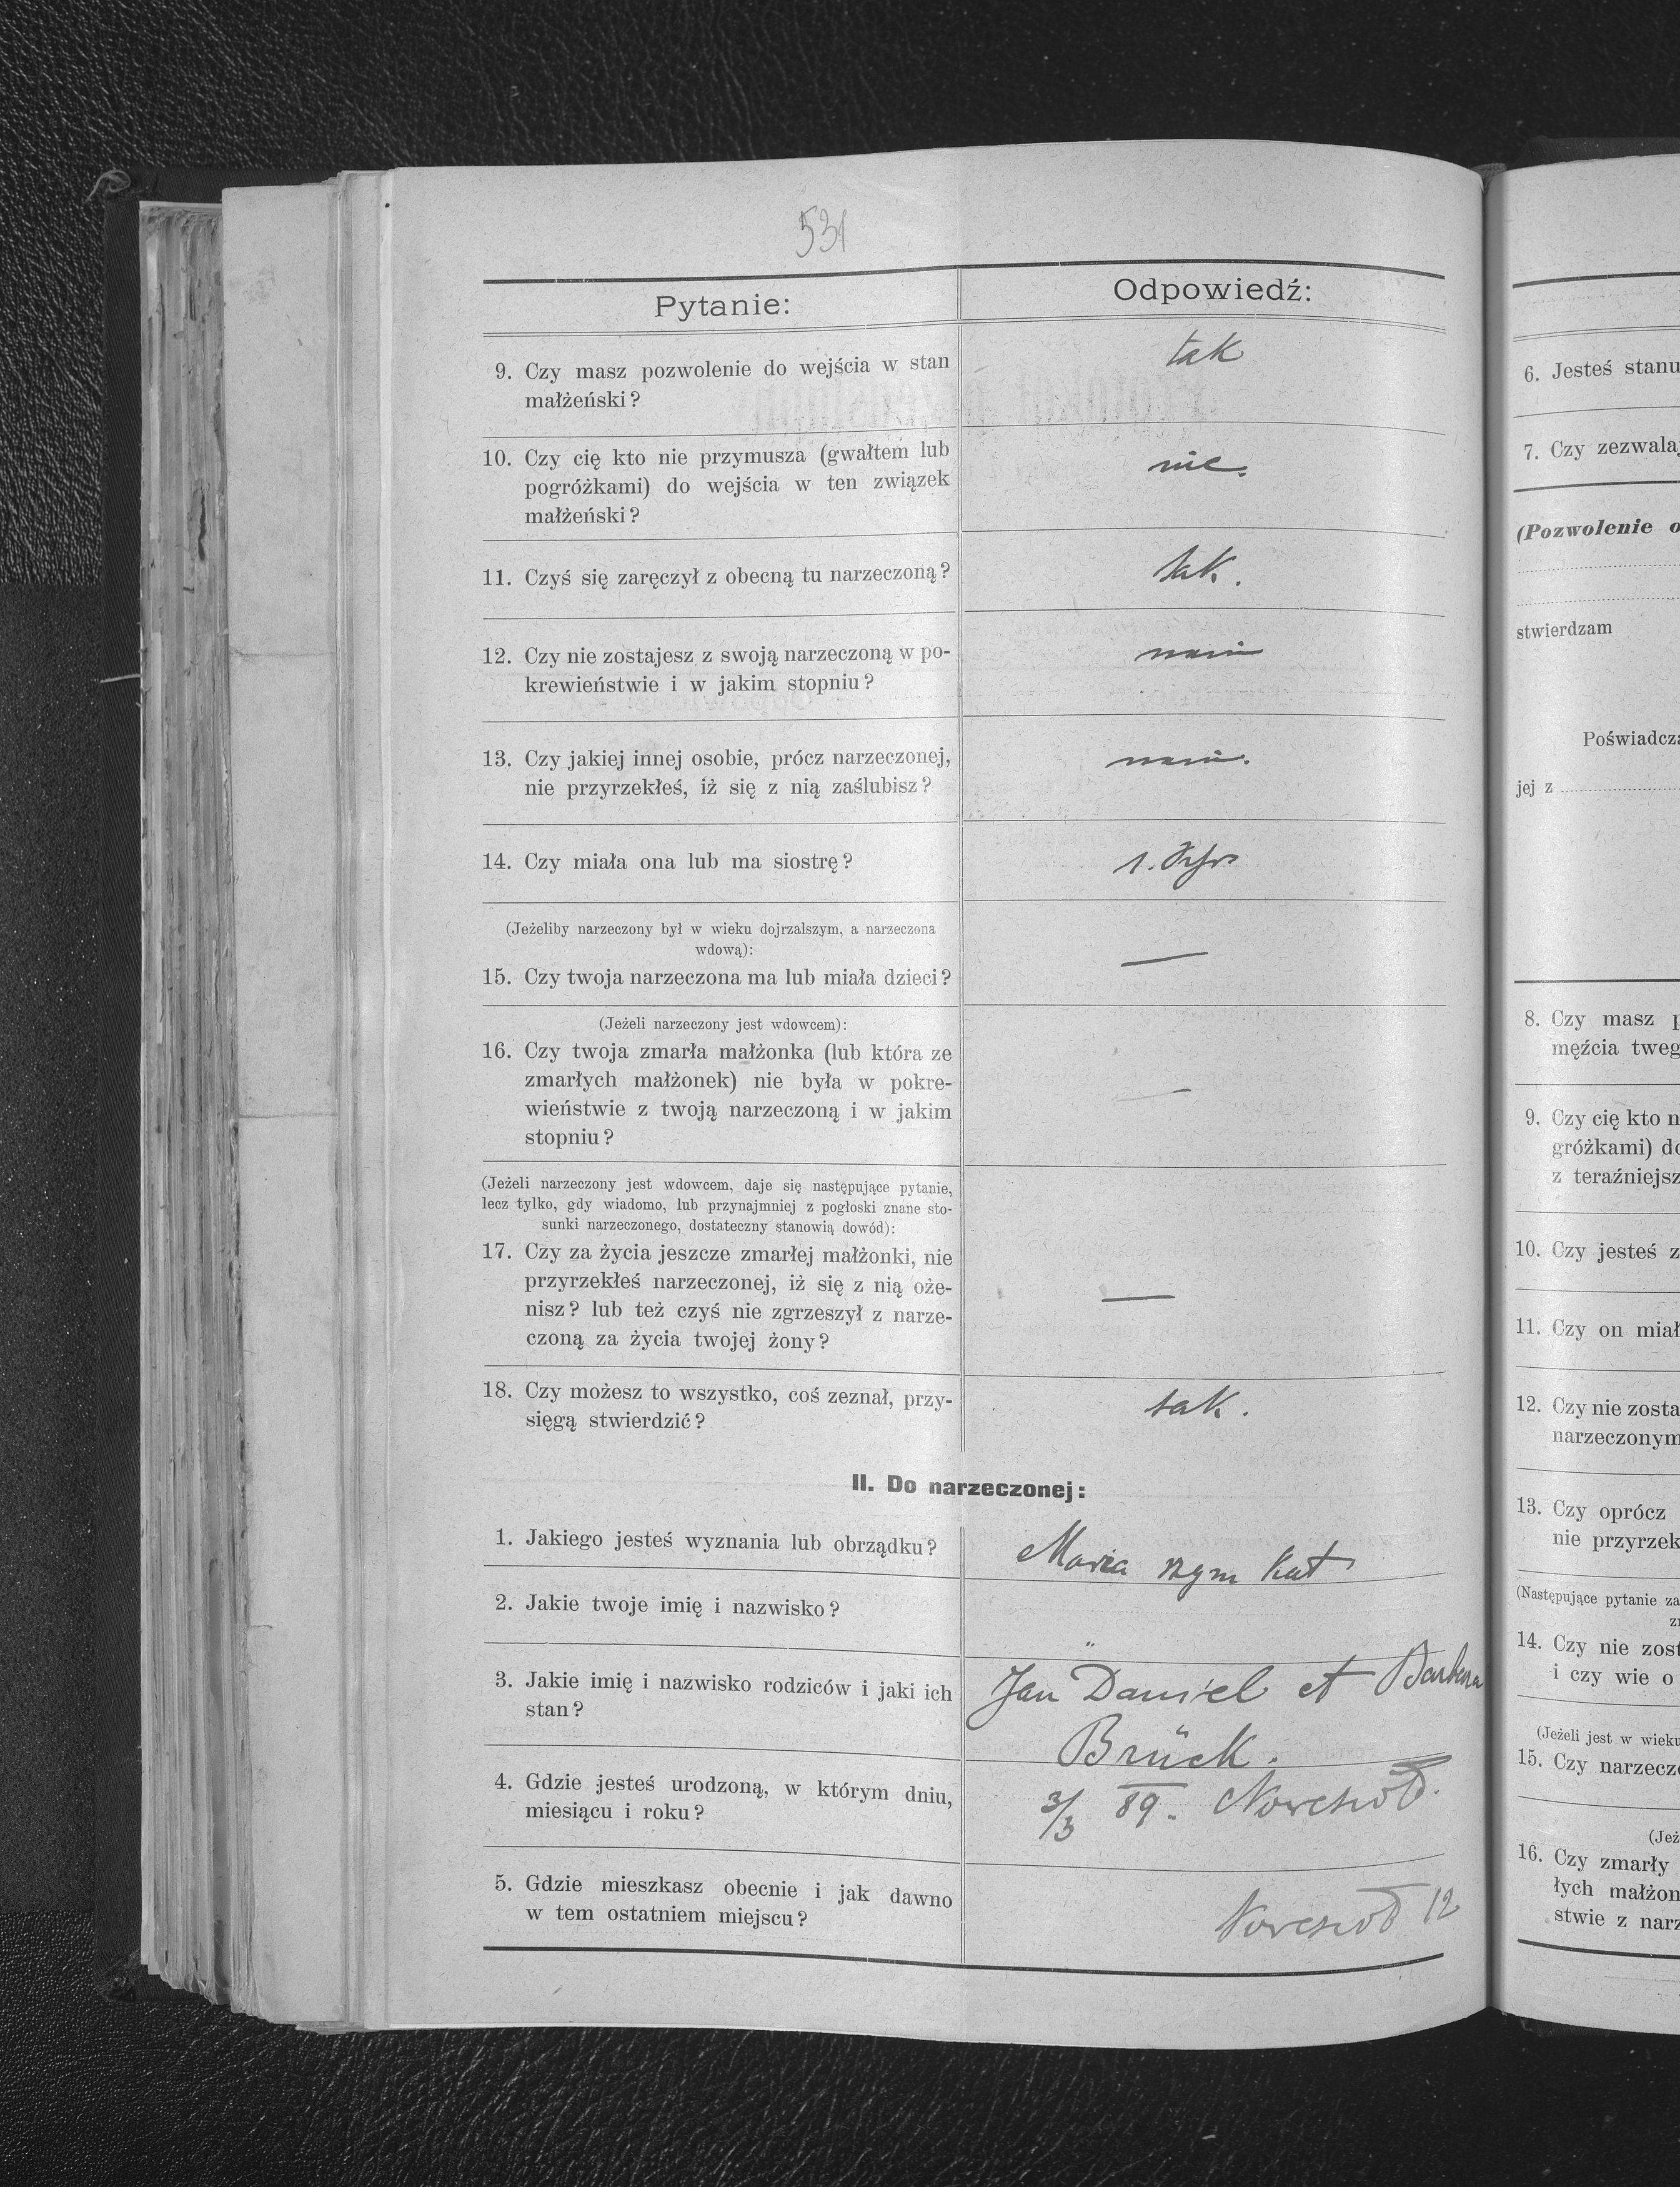 531
Pytanie:
Odpowiedź:
9. Czy masz pozwolenie do wejścia w stan
małżeński?
tak
10. Czy cię kto nie przymusza (gwałtem lub
pogróżkami) do wejścia w ten związek
małżeński?
nie.
11. Czyś się zaręczył z obecną tu narzeczoną?
tak.
12. Czy nie zostajesz z swoją narzeczoną w po-
krewieństwie i w jakim stopniu?
13. Czy jakiej innej osobie, prócz narzeczonej,
nie przyrzekłeś, iż się z nią zaślubisz?
14. Czy miała ona lub ma siostrę?
1.
(Jeżeliby narzeczony był w wieku dojrzalszym, a narzeczona
wdową):
15. Czy twoja narzeczona ma lub miała dzieci?
—
(Jeżeli narzeczony jest wdowcem):
16. Czy twoja zmarła małżonka (lub która ze
zmarłych małżonek) nie była w pokre-
wieństwie z twoją narzeczoną i w jakim
stopniu?
—
(Jeżeli narzeczony jest wdowcem, daje się następujące pytanie,
lecz tylko, gdy wiadomo, lub przynajmniej z pogłoski znane sto-
sunki narzeczonego, dostateczny stanowią dowód):
17. Czy za życia jeszcze zmarłej małżonki, nie
przyrzekłeś narzeczonej, iż się z nią oże-
nisz? lub też czyś nie zgrzeszył z narze-
czoną za życia twojej żony?
—
18. Czy możesz to wszystko, coś zeznał, przy-
sięgą stwierdzić?
tak.
II. Do narzeczonej:
1. Jakiego jesteś wyznania lub obrządku?
Maria rzym kat
2. Jakie twoje imię i nazwisko?
3. Jakie imię i nazwisko rodziców i jaki ich
stan?
Jan Daniel et Barbara
Brück.
4. Gdzie jesteś urodzoną, w którym dniu,
miesiącu i roku?
3/3 89.
5. Gdzie mieszkasz obecnie i jak dawno
w tem ostatniem miejscu?
12
6. Jesteś stanu
7. Czy zezwalaj
(Pozwolenie o
stwierdzam
Poświadcza
jej z
8. Czy masz p
męźcia tweg
9. Czy cię kto n
gróżkami) do
z teraźniejsz
10. Czy jesteś z
11. Czy on miał
12. Czy nie zosta
narzeczonym
13. Czy oprócz
nie przyrzek
(Następujące pytanie za
zn
14. Czy nie zost
i czy wie o
(Jeżeli jest w wieku
15. Czy narzecze
(Jeż
16. Czy zmarły
łych małżon
stwie z narz